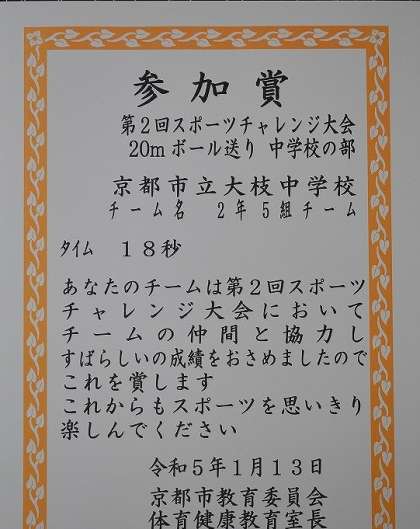 参加賞
第2回スポーツチャレンジ大会
20mボール送り 中学校の部
京都市立大枝中学校
チーム名 2年5組チーム
タイム 18秒
あなたのチームは第2回スポーツ
チャレンジ大会において
チームの仲間と協力し
すばらしいの成績をおさめましたので
これを賞します
これからもスポーツを思いきり
楽しんでください
令和5年1月13日
京都市教育委員会
体育健康教育室長